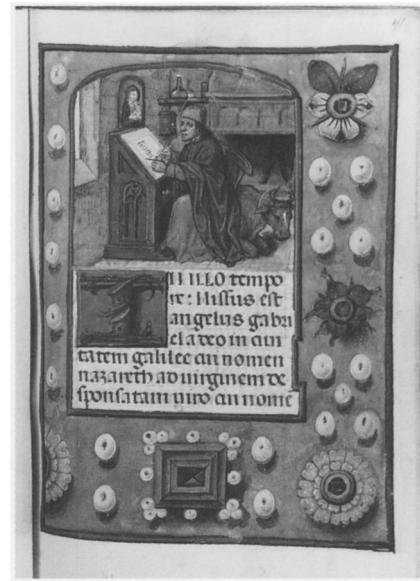 IN ILLO tempo
re: Missus est
angelus gabri
el a deo in ciui
tatem galilee cui nomen
nazareth ad uirginem de
sponsatam uiro cui nome